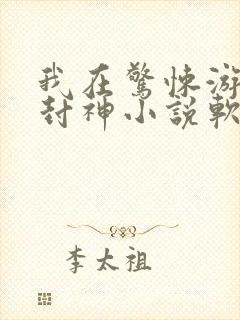 我在驚悚游
封神小說軟
李太祖